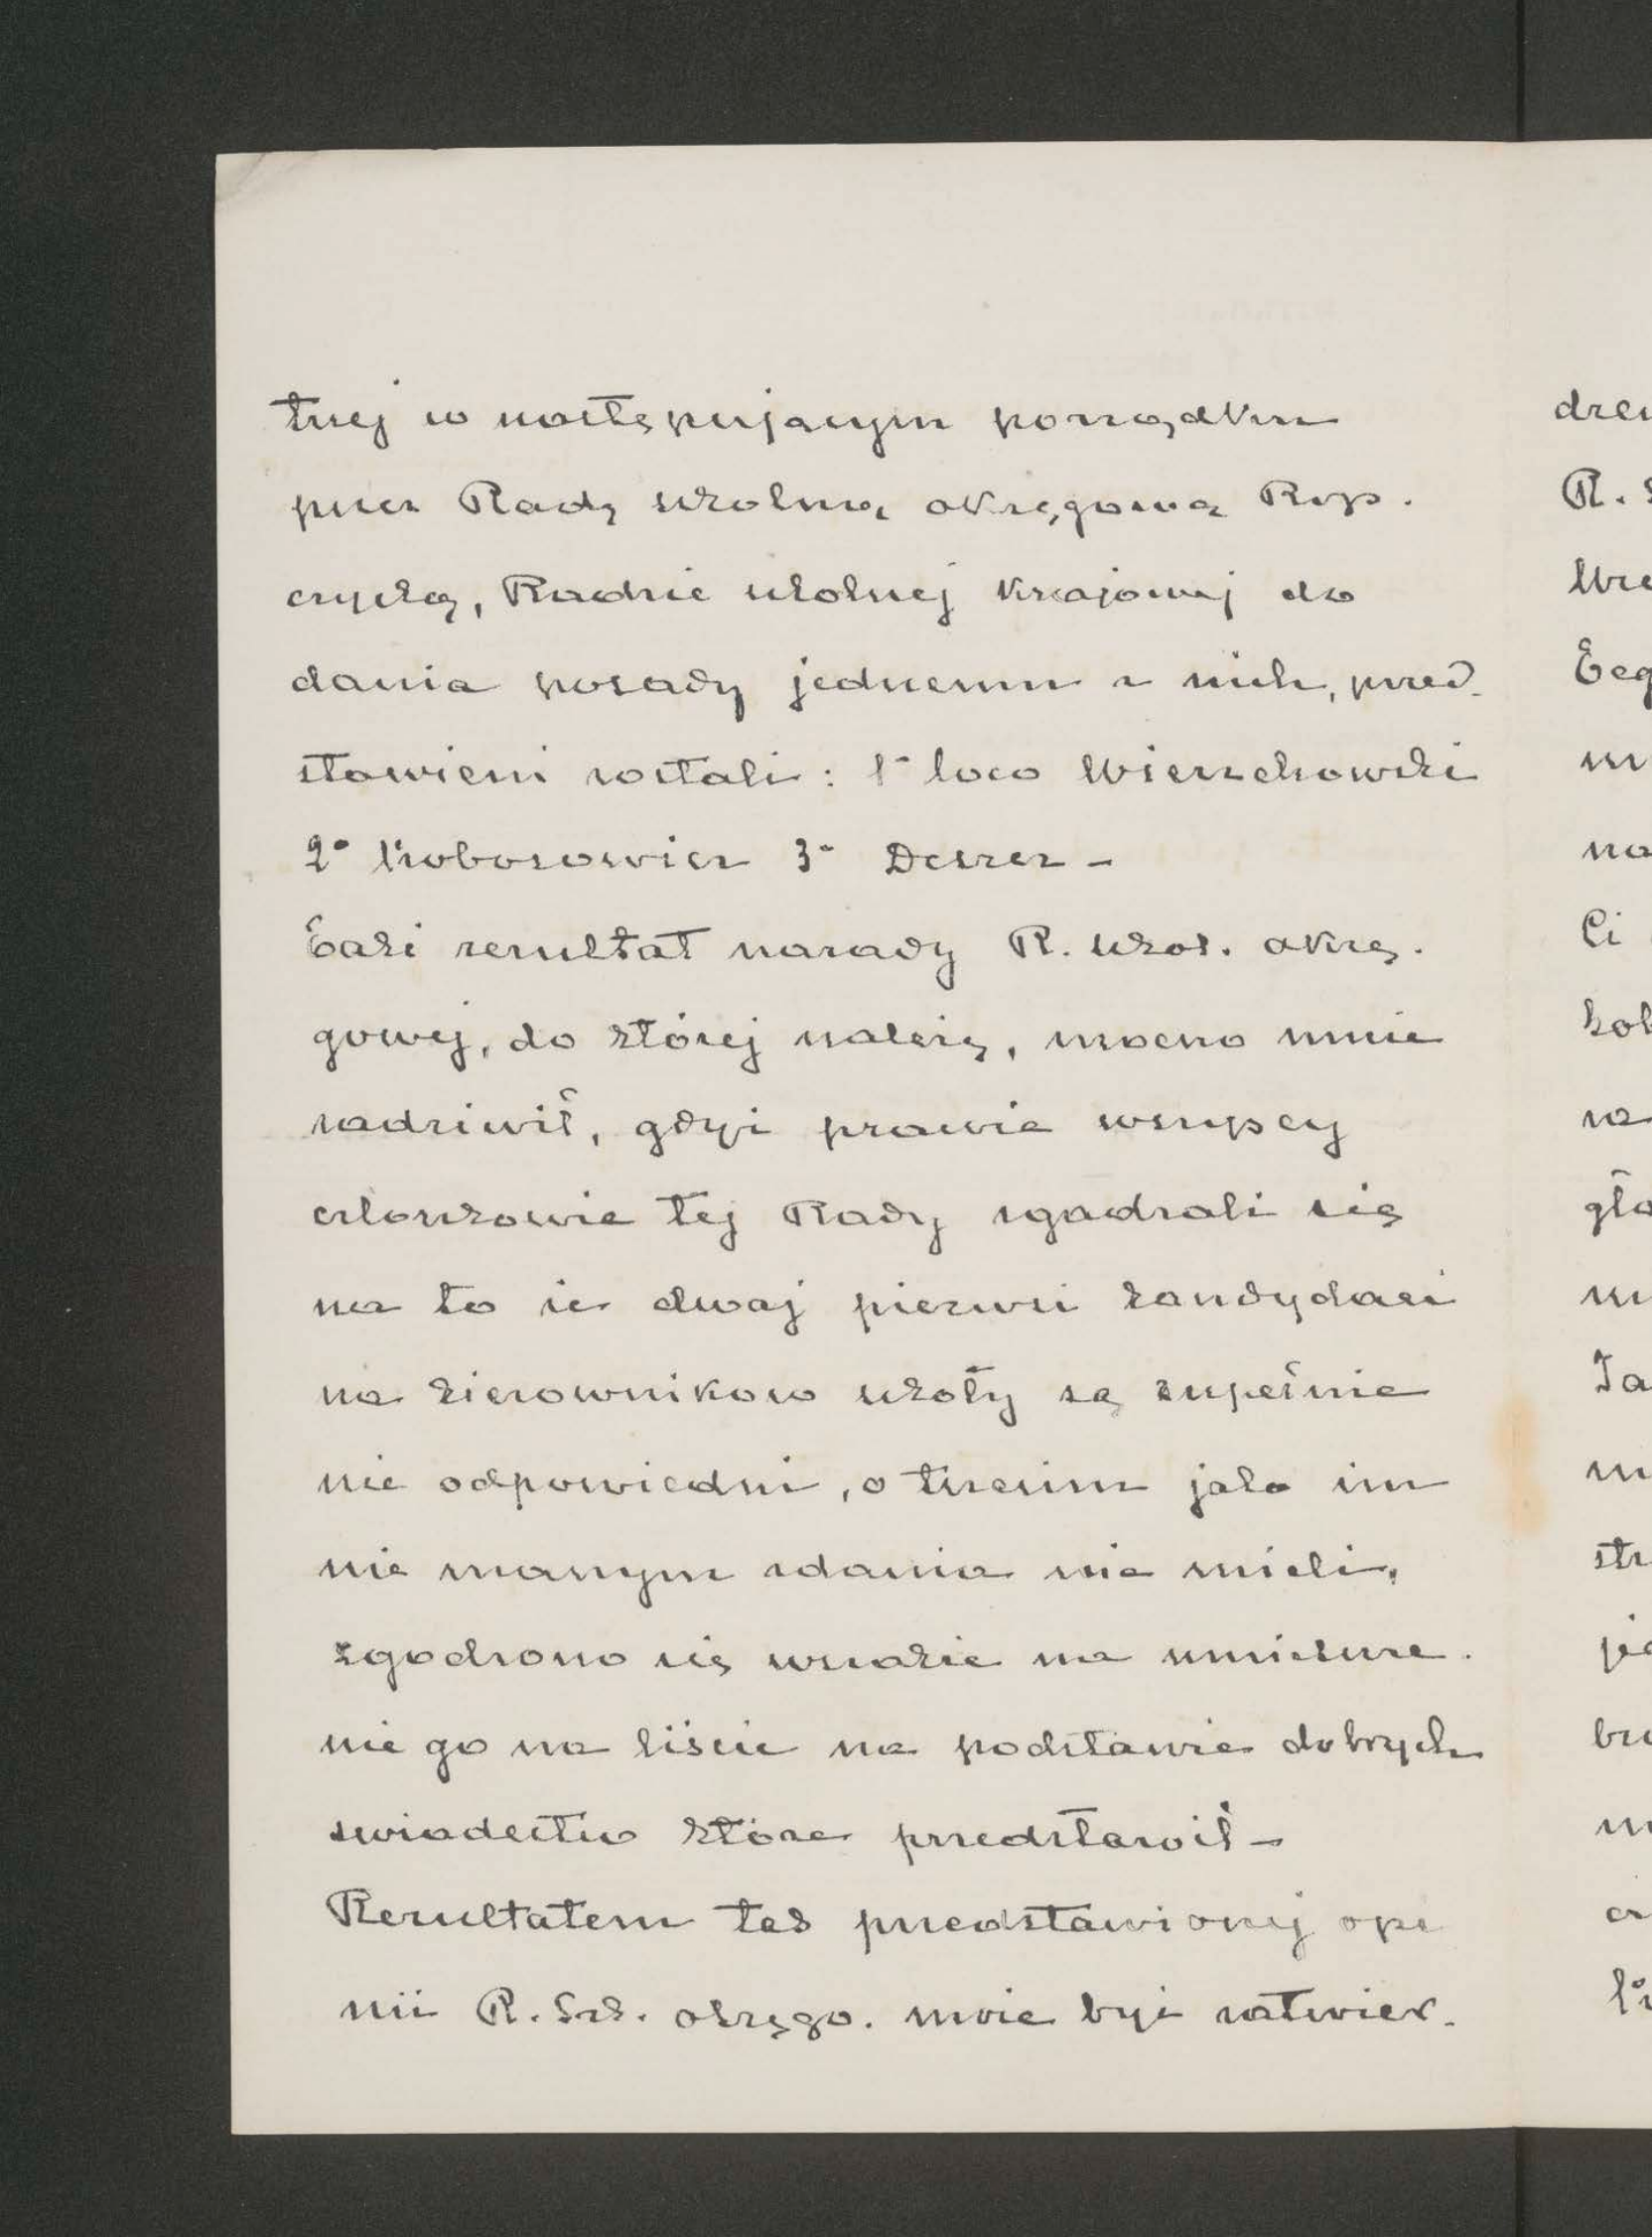 trzej w następującym porządku
przez Radę szkolną okręgową Rop.
czycką, Radzie szkolnej krajowej do
dania posady jednemu z nich, przed-
stawieni zostali: 1° loco Wierzchowski
2° Koborowicz 3° Deszcz -
Taki rezultat narady R. szkol. okrę.
gowej, do której należę, mocno mnie
zadziwił, gdyż prawie wszyscy
członkowie tej Rady zgadzali się
na to że dwaj pierwsi kandydaci
na kierownikow szkoły są zupełnie
nie odpowiedni, o trzecim jako im
nie znanym zdania nie mieli,
zgodzono się wszakże na umieszcze.
nie go na liście na podstawie dobrych
swiadectw które przedstawił -
Rezultatem tak przedstawionej opi
nii R. Szk. okręgo. może być zatwier.